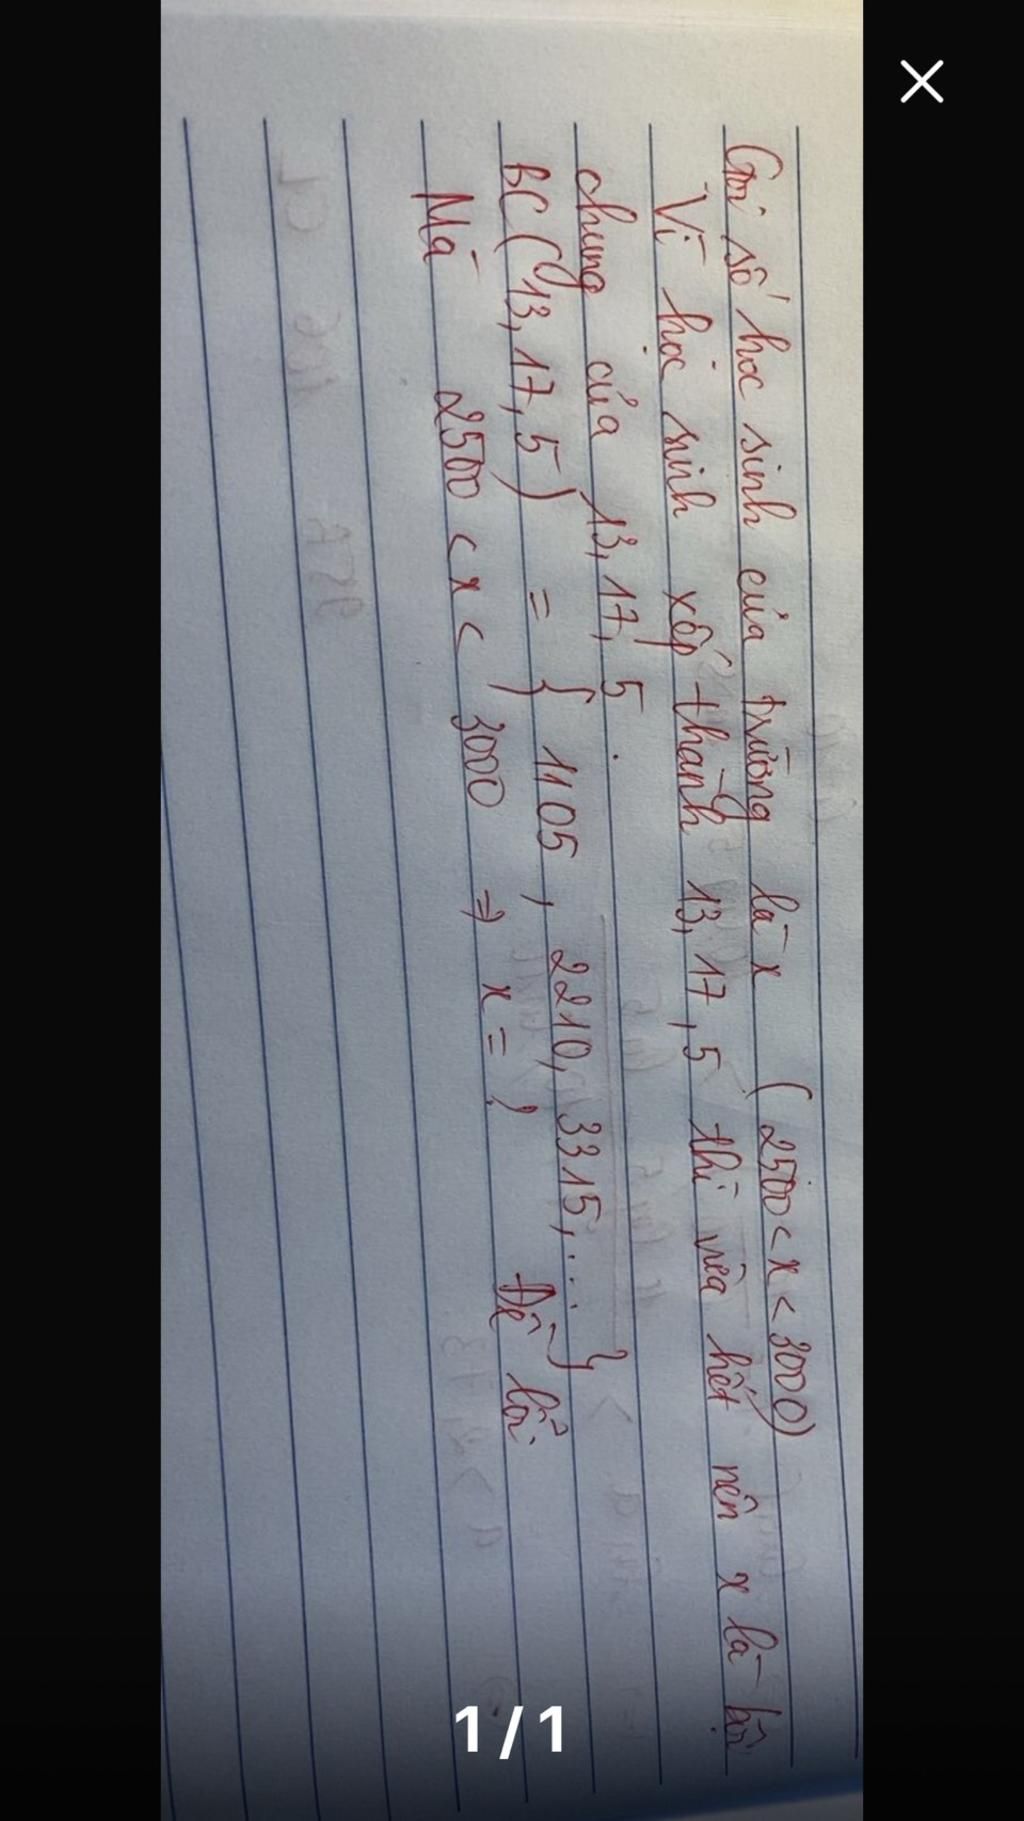 Gọi số học sinh của trường là x (2500 < x < 3000)
Vì học sinh xếp thành 13, 17, 5 thì vừa hết nên x là bội
chung của 13, 17, 5.
BC (13, 17, 5) = { 1105, 2210, 3315, ... }
Mà 2500 < x < 3000 => x = ? Đề lỗi
1/1